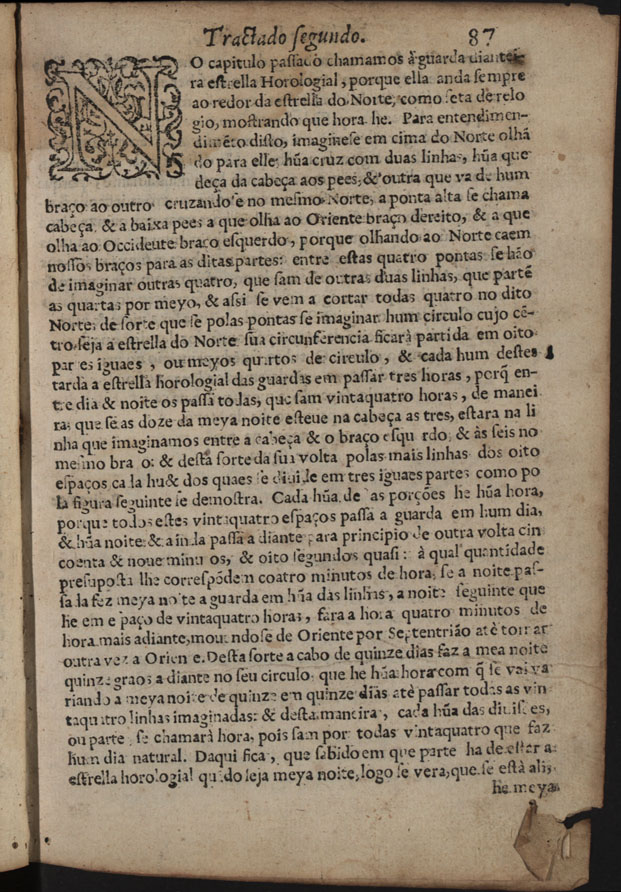 Tractado segundo. 87
NO capitulo passado chamamos á guarda diantei-
ra estrella Horologial, porque ella anda sempre
ao redor da estrella do Norte, como seta de relo
gio, mostrando que hora he. Para entendimen-
dimẽto disto, imaginese em cima do Norte olhã
do para elle, hũa cruz com duas linhas, hũa que
deça da cabeça aos pees, & outra que va de hum
braço ao outro cruzandose no mesmo Norte, a ponta alta se chama
cabeça, & a baixa pees a que olha ao Oriente braço dereito, & a que
olha ao Occideute braço esquerdo, porque olhando ao Norte caem
nossos braços para as ditas partes: entre estas quatro pontas se hão
de imaginar outras quatro, que sam de outras duas linhas, que partẽ
as quartas por meyo, & assi se vem a cortar todas quatro no dito
Norte, de sorte que se polas pontas se imaginar hum circulo cujo cẽ-
tro seja a estrella do Norte sua circunferencia ficará partida em oito
par es iguaes, ou meyos quartos de circulo, & cada hum destes
tarda a estrella horologial das guardas em passar tres horas, porq̃ en-
tre dia & noite os passa todas, que sam vintaquatro horas, de manei
ra, que se às doze da meya noite esteue na cabeça as tres, estara na li
nha que imaginamos entre a cabeça & o braço esqu rdo, & às seis no
mesmo bra o: & desta sorte da sua volta polas mais linhas dos oito
espaços cada hu& dos quaes se diuide em tres iguaes partes como po
la figura seguinte se demostra. Cada hũa de as porções he hũa hora,
porque todos estes vintaquatro espaços passa a guarda em hum dia,
& hũa noite & ainda passa a diante para principio de outra volta cin
coenta & noue minu os, & oito segundos quasi: à qual quantidade
presuposta lhe correspõdem coatro minutos de hora, se a noite pas-
sada fez meya noite a guarda em hũa das linhas, a noite seguinte que
he em e paço de vintaquatro horas, fara a hora quatro minutos de
hora mais adiante, mouendose de Oriente por Septentrião atè tornar
outra vez a Orien e. Desta sorte a cabo de quinze dias faz a mea noite
quinze graos a diante no seu circulo, que he hũa hora com q̃ se vai va
riando a meya noite de quinze em quinze dias atè passar todas as vin
taquatro linhas imaginadas: & desta maneira, cada hũa das diuis es,
ou parte se chamará hora, pois sam por todas vintaquatro que faz
hum dia natural. Daqui fica, que sabido em que parte ha de estar a
estrella horologial quãdo seja meya noite, logo se vera, que se està ali,
he meya